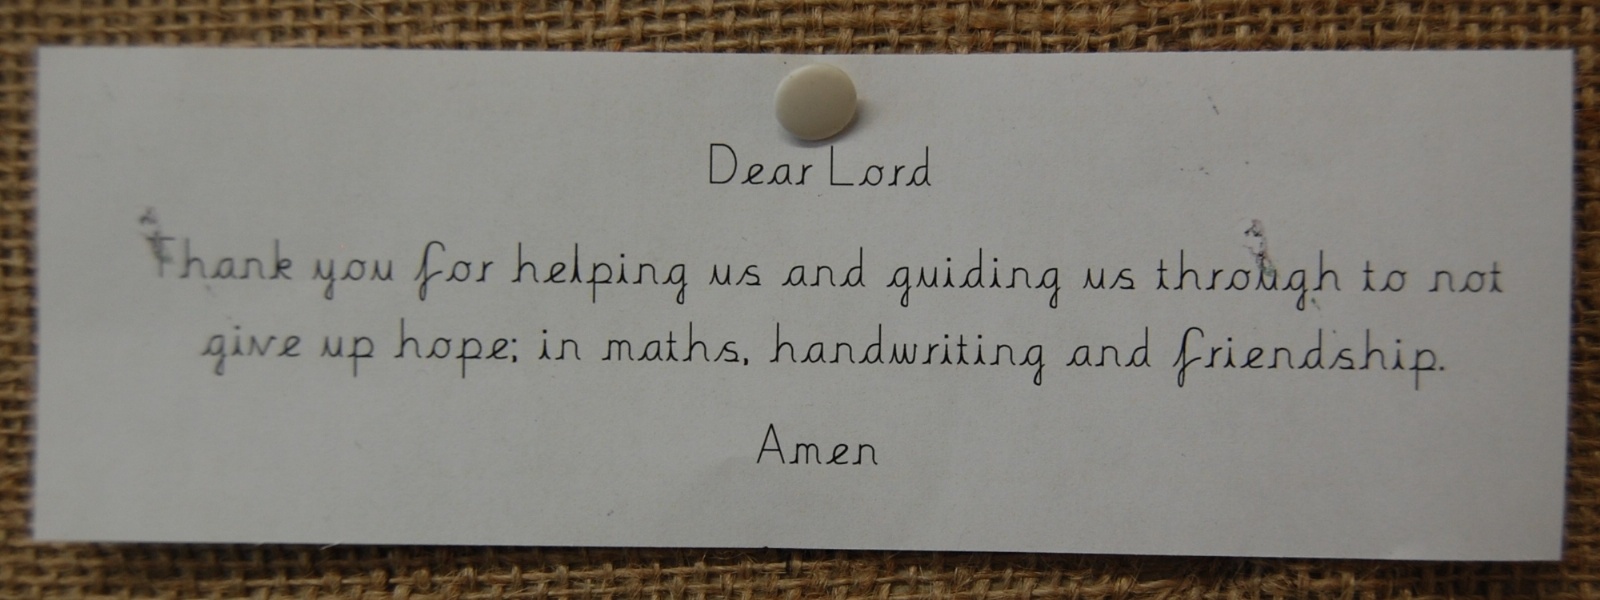 Dear Lord
Thank you for helping us and guiding us through to not
give up hope; in maths, handwriting and friendship.
Amen